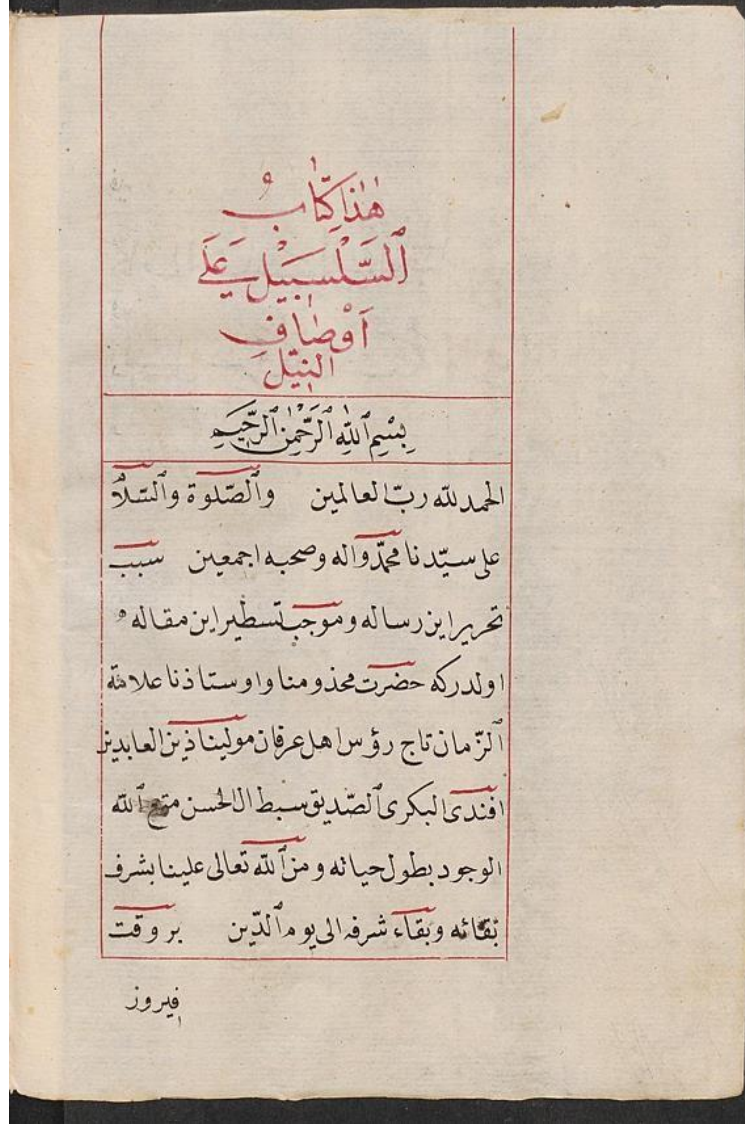 هٰذا كِتابُ
اَلسَّلْسَبِيْل عَلَے
اَوْصٰافِ
النِيّل
بِسْمِ اللّٰهِ الرَّحْمٰنِ الرَّحِيْمِ
الحمد للّه ربّ العالمين والصّلوة والسّلاٰم
على سيّدنا محمّد واله وصحبه اجمعين سبب
تحرير اين رساله وموجب تسطير اين مقاله
اولدركه حضرت مخذومنا واوستاذنا علامة
الزّمان تاج رؤس اهل عرفان مولينا ذين العابدين
افندى البكرى الصّديق سبط ال الحسن متع اللّه
الوجود بطول حياته ومن اللّه تعالى علينا بشرف
بقائه وبقاء شرفه الى يوم الدّين بر وقت
فيروز